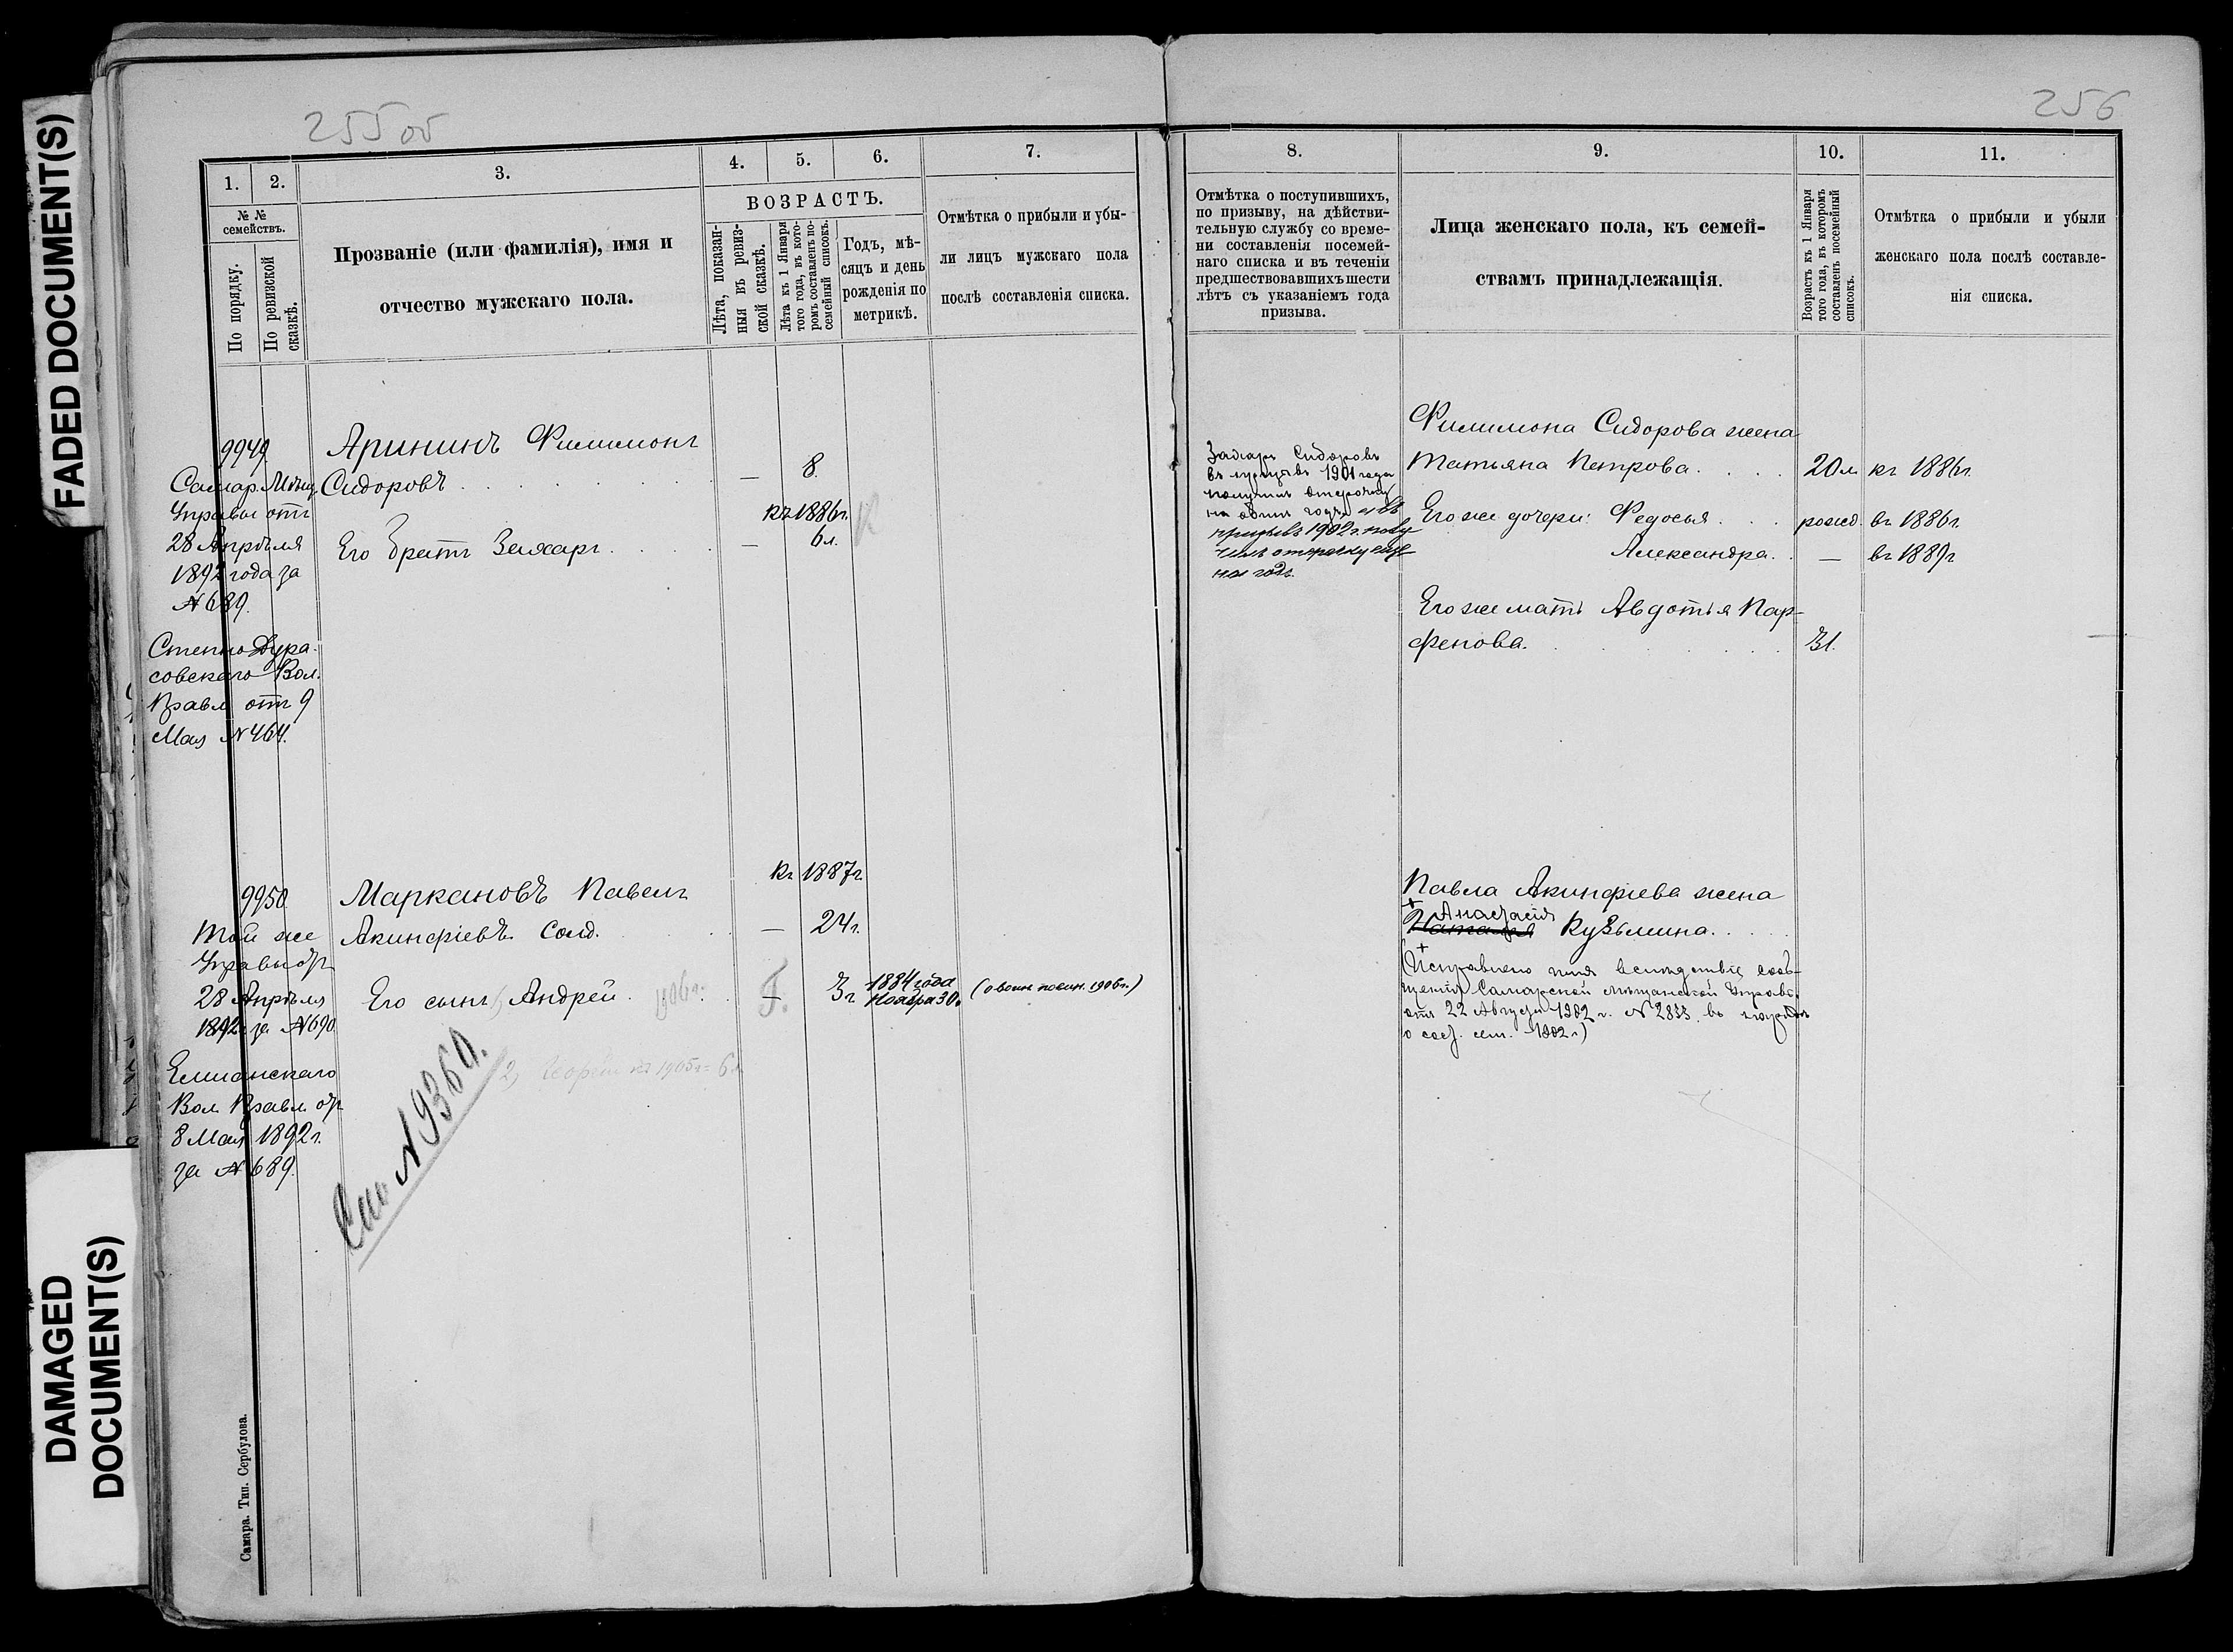 FADED DOCUMENT(S)
DAMAGED
DOCUMENT(S)
255 об
1.
2.
3.
4.
5.
6.
7.
№ №
семействъ.
По порядку.
По ревизской
сказкѣ.
Прозваніе (или фамилія), имя и
отчество мужскаго пола.
ВОЗРАСТЪ.
Лѣта, показан-
ныя въ ревиз-
ской сказкѣ.
Лѣта къ 1 Января
того года, въ кото-
ромъ составленъ по-
семейный списокъ.
Годъ, мѣ-
сяцъ и день
рожденія по
метрикѣ.
Отмѣтка о прибыли и убы-
ли лицъ мужскаго пола
послѣ составленія списка.
9949
Самар. Мѣщ.
Управы отъ
28 Апрѣля
1892 года за
№ 689.
Степно Дура-
совскаго Вол.
Правл. отъ 9
Мая № 464.
Арининъ Филимонъ
Сидоровъ
— 8.
къ 1886г.
Его братъ Захаръ
— 6л.
9950
Той же
Управы отъ
28 Апрѣля
1892 за № 690
Елшанскаго
Вол. Правл. отъ
8 Мая 1892г.
за № 689.
къ 1887г.
Маркановъ Павелъ
Акинфіевъ Солд.
— 24г.
Его сынъ 1) Андрей
1906г.
— 3г
1884 года
Ноября 30.
(о воин. повин. 1906г.)
2) Георгій къ 1905г = 6л
См № 9360.
Самара. Тип. Сербулова.
256
8.
9.
10.
11.
Отмѣтка о поступившихъ,
по призыву, на дѣйстви-
тельную службу со време-
ни составленія посемей-
наго списка и въ теченіи
предшествовавшихъ шести
лѣтъ съ указаніемъ года
призыва.
Лица женскаго пола, къ семей-
ствамъ принадлежащія.
Возрастъ къ 1 Января
того года, въ которомъ
составленъ посемейный
списокъ.
Отмѣтка о прибыли и убыли
женскаго пола послѣ составле-
нія списка.
Захаръ Сидоровъ
въ призывъ 1901 года
получилъ отсрочку
на одинъ годъ и въ
призывъ 1902 г. полу
чилъ отсрочку еще
на годъ.
Филимона Сидорова жена
Татьяна Петрова.
20л.
къ 1886г.
Его же дочери: Федосья
рожд.
въ 1886г.
Александра.
—
въ 1889г
Его же мать Авдотья Пар-
фенова.
31.
Павла Акинфіева жена
Анастасія
Кузьмина.
(Исправлено имя вслѣдствіе сооб-
щенія Самарской мѣщанской Управы
отъ 22 Августа 1902 г. № 2833. въ
о сост. сем. 1902 г)